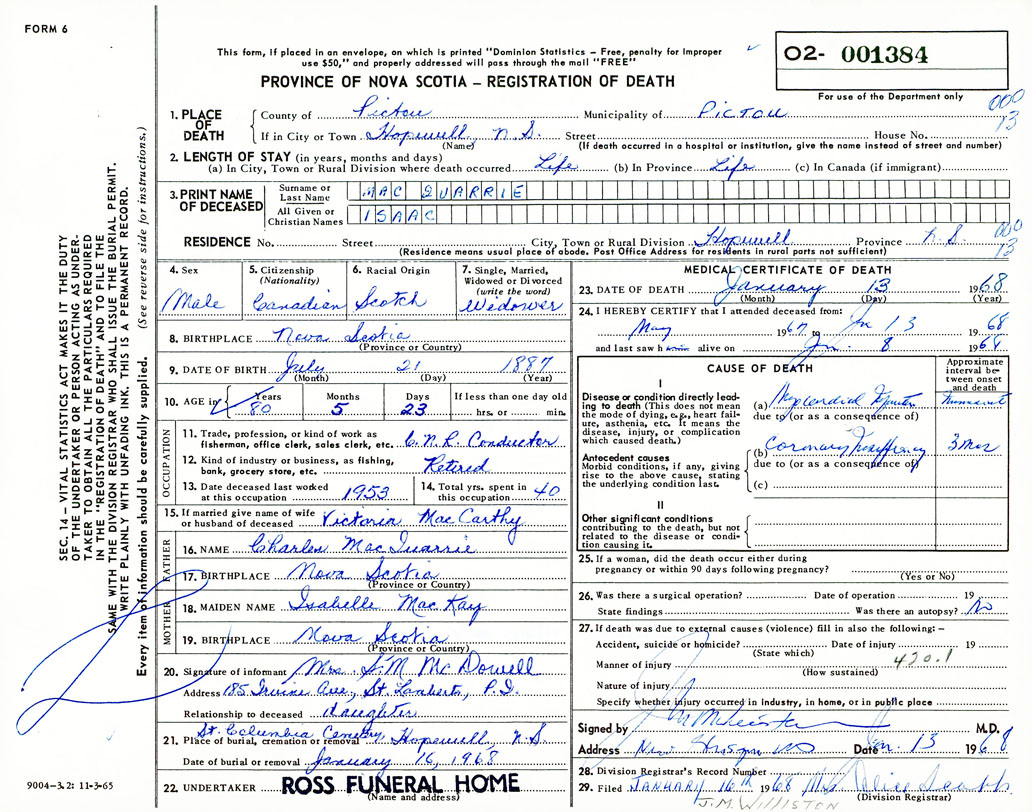 FORM 6
This form, if placed in an envelope, on which is printed "Dominion Statistics – Free, penalty for improper
use $50," and properly addressed will pass through the mail "FREE"
O2- 001384
For use of the Department only
PROVINCE OF NOVA SCOTIA – REGISTRATION OF DEATH
000
13
1. PLACE OF DEATH
County of Pictou Municipality of PICTOU
If in City or Town Hopewell, N.S. Street House No.
(Name) (If death occurred in a hospital or institution, give the name instead of street and number)
2. LENGTH OF STAY (in years, months and days)
(a) In City, Town or Rural Division where death occurred Life (b) In Province Life (c) In Canada (if immigrant)
3. PRINT NAME OF DECEASED
Surname or Last Name MAC QUARRIE
All Given or Christian Names ISAAC
RESIDENCE No. Street City, Town or Rural Division Hopewell Province N.S.
000
13
(Residence means usual place of abode. Post Office Address for residents in rural parts not sufficient)
4. Sex
Male
5. Citizenship
(Nationality)
Canadian
6. Racial Origin
Scotch
7. Single, Married,
Widowed or Divorced
(write the word)
Widower
8. BIRTHPLACE Nova Scotia
(Province or Country)
9. DATE OF BIRTH July 21 1887
(Month) (Day) (Year)
10. AGE in
Years Months Days If less than one day old
80 5 23 hrs. or min.
OCCUPATION
11. Trade, profession, or kind of work as
fisherman, office clerk, sales clerk, etc. C.N.R. Conductor
12. Kind of industry or business, as fishing,
bank, grocery store, etc. Retired
13. Date deceased last worked
at this occupation 1953
14. Total yrs. spent in
this occupation 40
15. If married give name of wife
or husband of deceased Victoria MacCarthy
FATHER
16. NAME Charles MacQuarrie
17. BIRTHPLACE Nova Scotia
(Province or Country)
MOTHER
18. MAIDEN NAME Isabelle MacKay
19. BIRTHPLACE Nova Scotia
(Province or Country)
20. Signature of informant Mrs. S.M. McDowell
Address 185 Irvine Ave., St. Lamberts, P.Q.
Relationship to deceased daughter
21. Place of burial, cremation or removal St. Columbia Cemetry Hopewell, N.S.
Date of burial or removal January 16, 1968
22. UNDERTAKER ROSS FUNERAL HOME
(Name and address)
MEDICAL CERTIFICATE OF DEATH
23. DATE OF DEATH January 13 1968
(Month) (Day) (Year)
24. I HEREBY CERTIFY that I attended deceased from:
May 1967 to Jan 13 1968
and last saw h alive on Jan. 8 1968
CAUSE OF DEATH
Approximate
interval be-
tween onset
and death
I
Disease or condition directly lead-
ing to death (This does not mean
the mode of dying, e.g., heart fail-
ure, asthenia, etc. It means the
disease, injury, or complication
which caused death.)
(a) Myocardial
due to (or as a consequence of)
Antecedent causes
Morbid conditions, if any, giving
rise to the above cause, stating
the underlying condition last.
(b) Coronary Insufficiency 3 Mos
due to (or as a consequence of)
(c)
II
Other significant conditions
contributing to the death, but not
related to the disease or condi-
tion causing it.
25. If a woman, did the death occur either during
pregnancy or within 90 days following pregnancy?
(Yes or No)
26. Was there a surgical operation? Date of operation 19
State findings Was there an autopsy? No
27. If death was due to external causes (violence) fill in also the following: –
Accident, suicide or homicide? Date of injury 19
(State which)
Manner of injury 420.1
(How sustained)
Nature of injury
Specify whether injury occurred in industry, in home, or in public place
Signed by M.D.
Address New Glasgow NS Date Jan. 13 1968
28. Division Registrar's Record Number
29. Filed JANUARY 16th 1968 Mrs. Alice
(Division Registrar)
J.M. WILLISTON
SEC. 14 – VITAL STATISTICS ACT MAKES IT THE DUTY
OF THE UNDERTAKER OR PERSON ACTING AS UNDER-
TAKER TO OBTAIN ALL THE PARTICULARS REQUIRED
IN THE "REGISTRATION OF DEATH" AND TO FILE THE
SAME WITH THE DIVISION REGISTRAR WHO SHALL ISSUE THE BURIAL PERMIT.
WRITE PLAINLY WITH UNFADING INK. THIS IS A PERMANENT RECORD.
Every item of information should be carefully supplied. (See reverse side for instructions.)
9004-3.2: 11-3-65